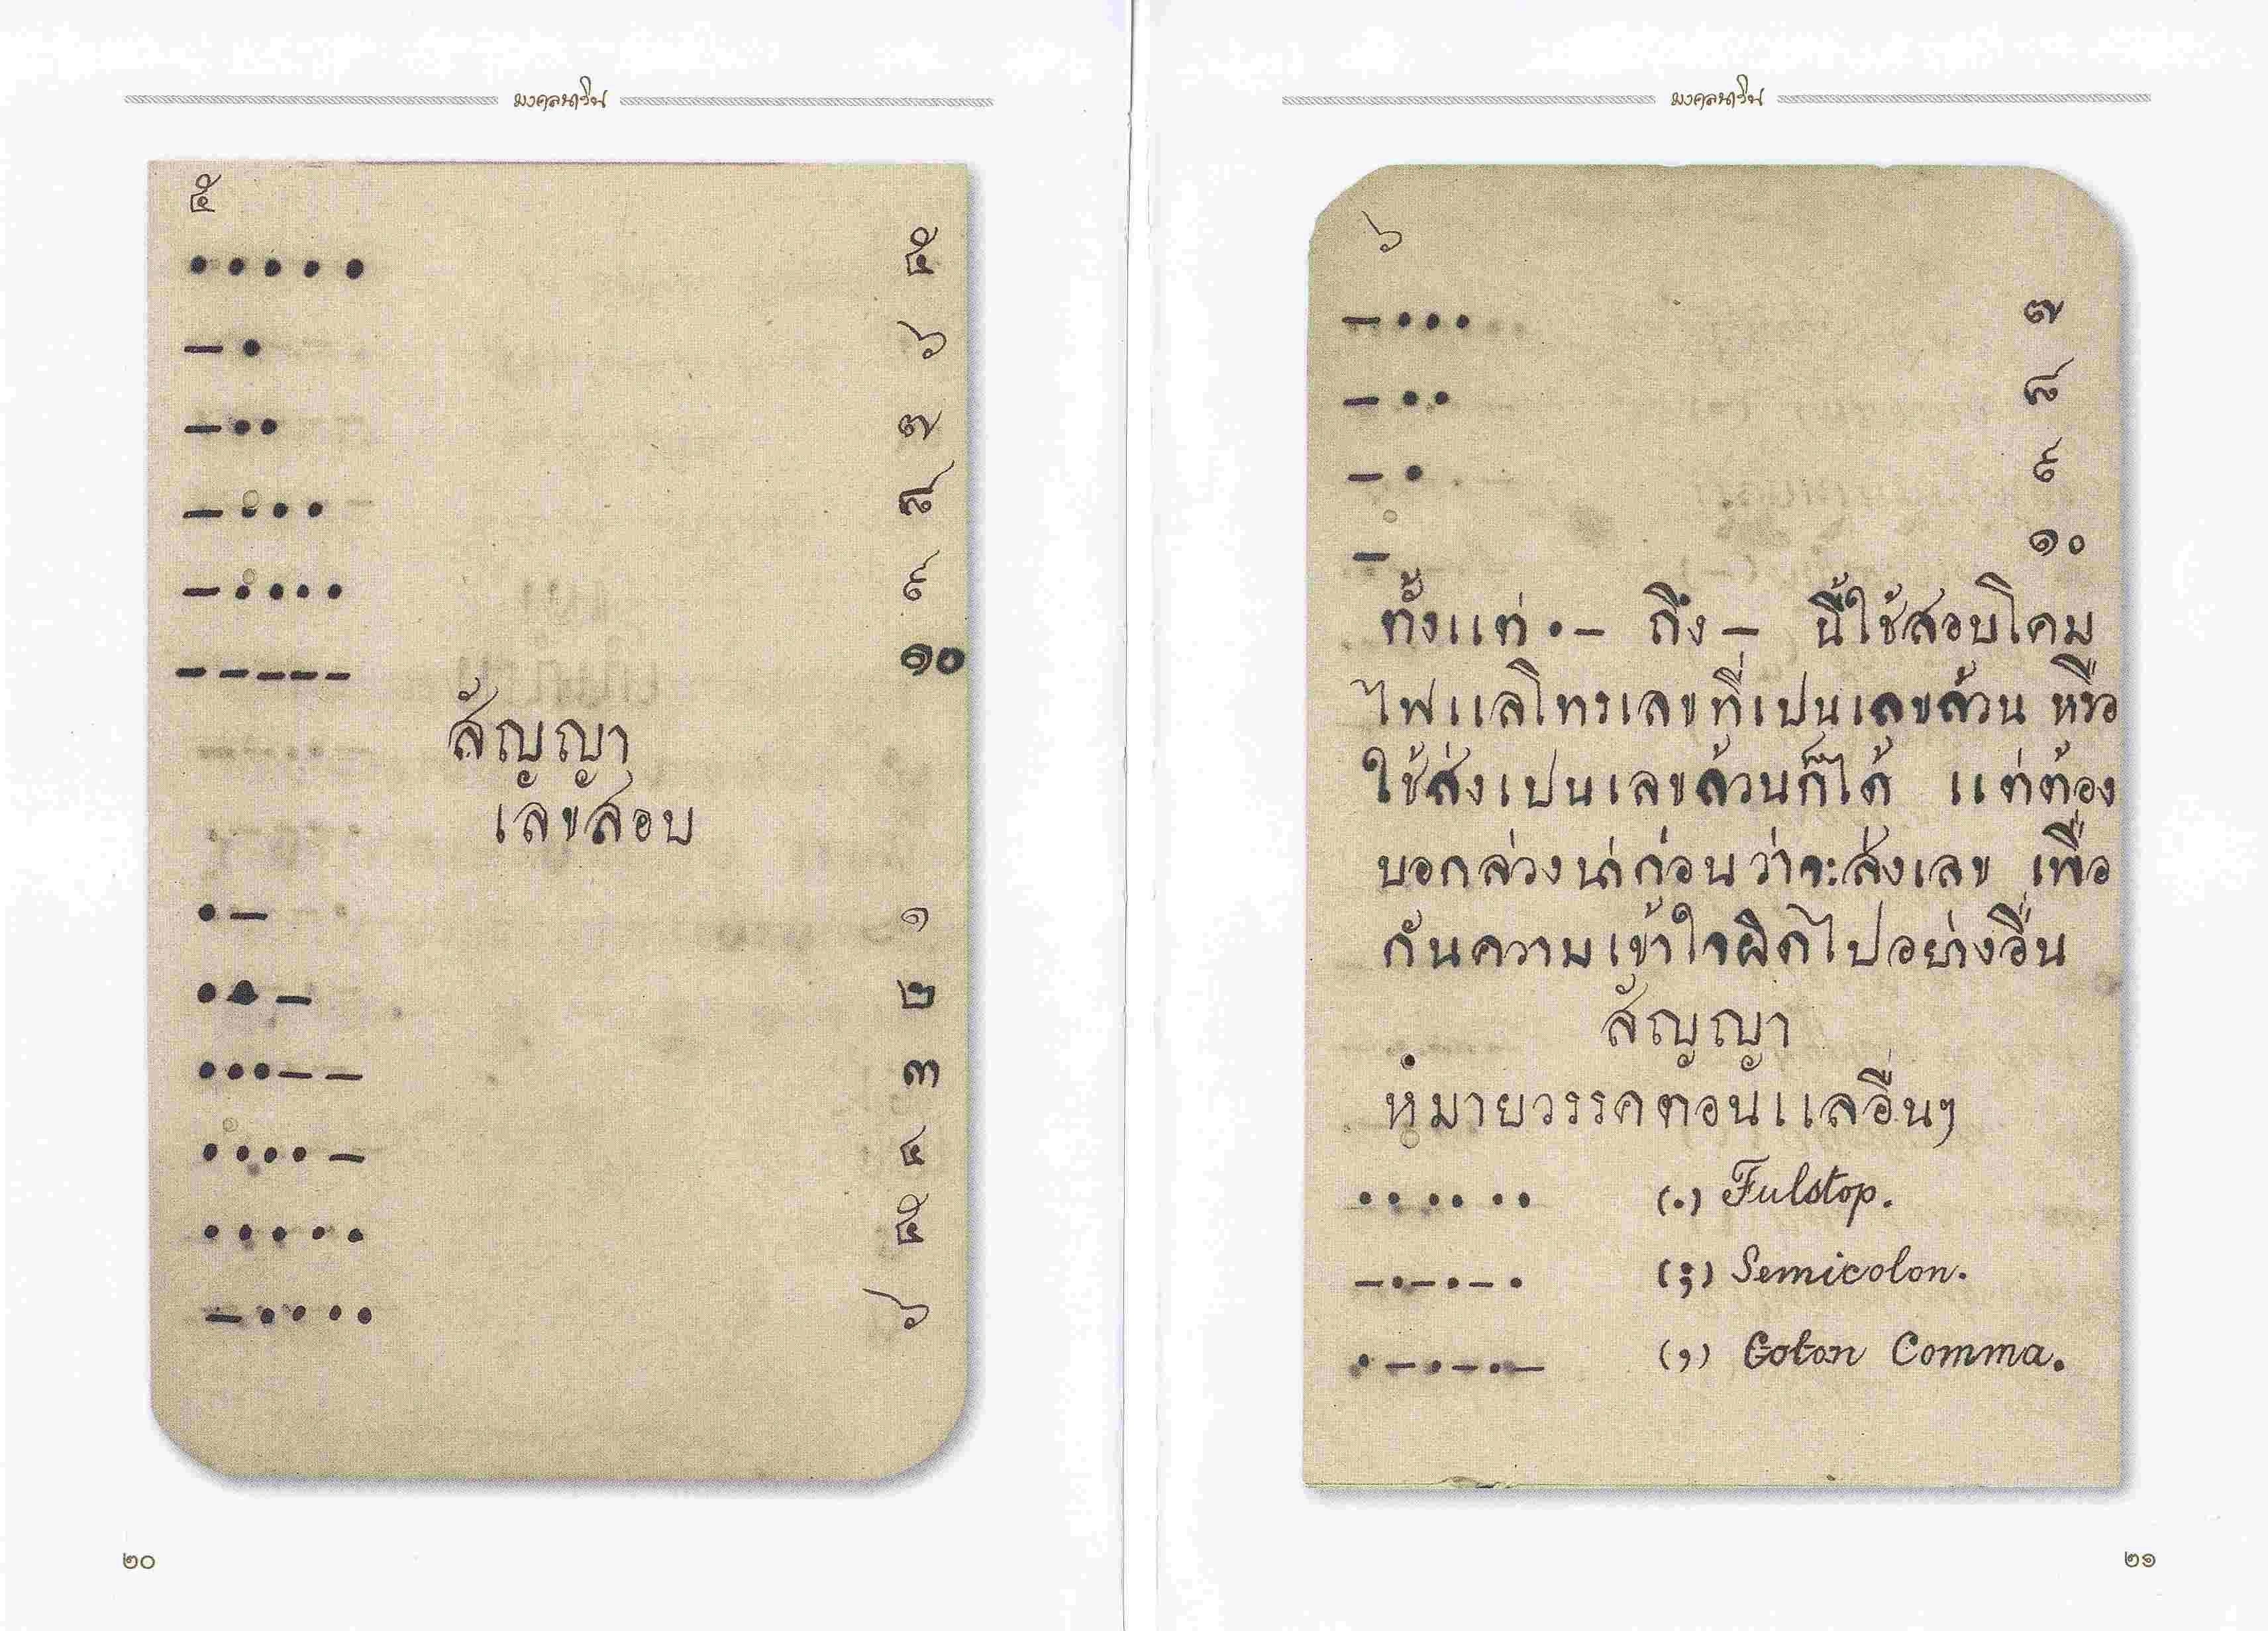 มงคลนาวิน
๕
• • • • • ๕
— • ๖
— • • ๗
— • • • ๘
— • • • • ๙
— — — — — ๑๐
สัญญา
เลขสอบ
• — ๑
• • — ๒
• • • — — ๓
• • • • — ๔
• • • • • ๕
— • • • • ๖
๒๐
มงคลนาวิน
๖
— • • • ๗
— • • ๘
— • ๙
— ๑๐
ตั้งแต่ • — ถึง — นี้ใช้สอบโคม
ไฟแลโทรเลขที่เปนเลขล้วน หรือ
ใช้ส่งเปนเลขล้วนก็ได้ แต่ต้อง
บอกล่วงน่าก่อนว่าจะส่งเลข เพื่อ
กันความเข้าใจผิดไปอย่างอื่น
สัญญา
หมายวรรคตอนแลอื่นๆ
• • • • • • (.) Fulstop.
— • — • — • (;) Semicolon.
• — • — • — (,) Comma.
๒๑